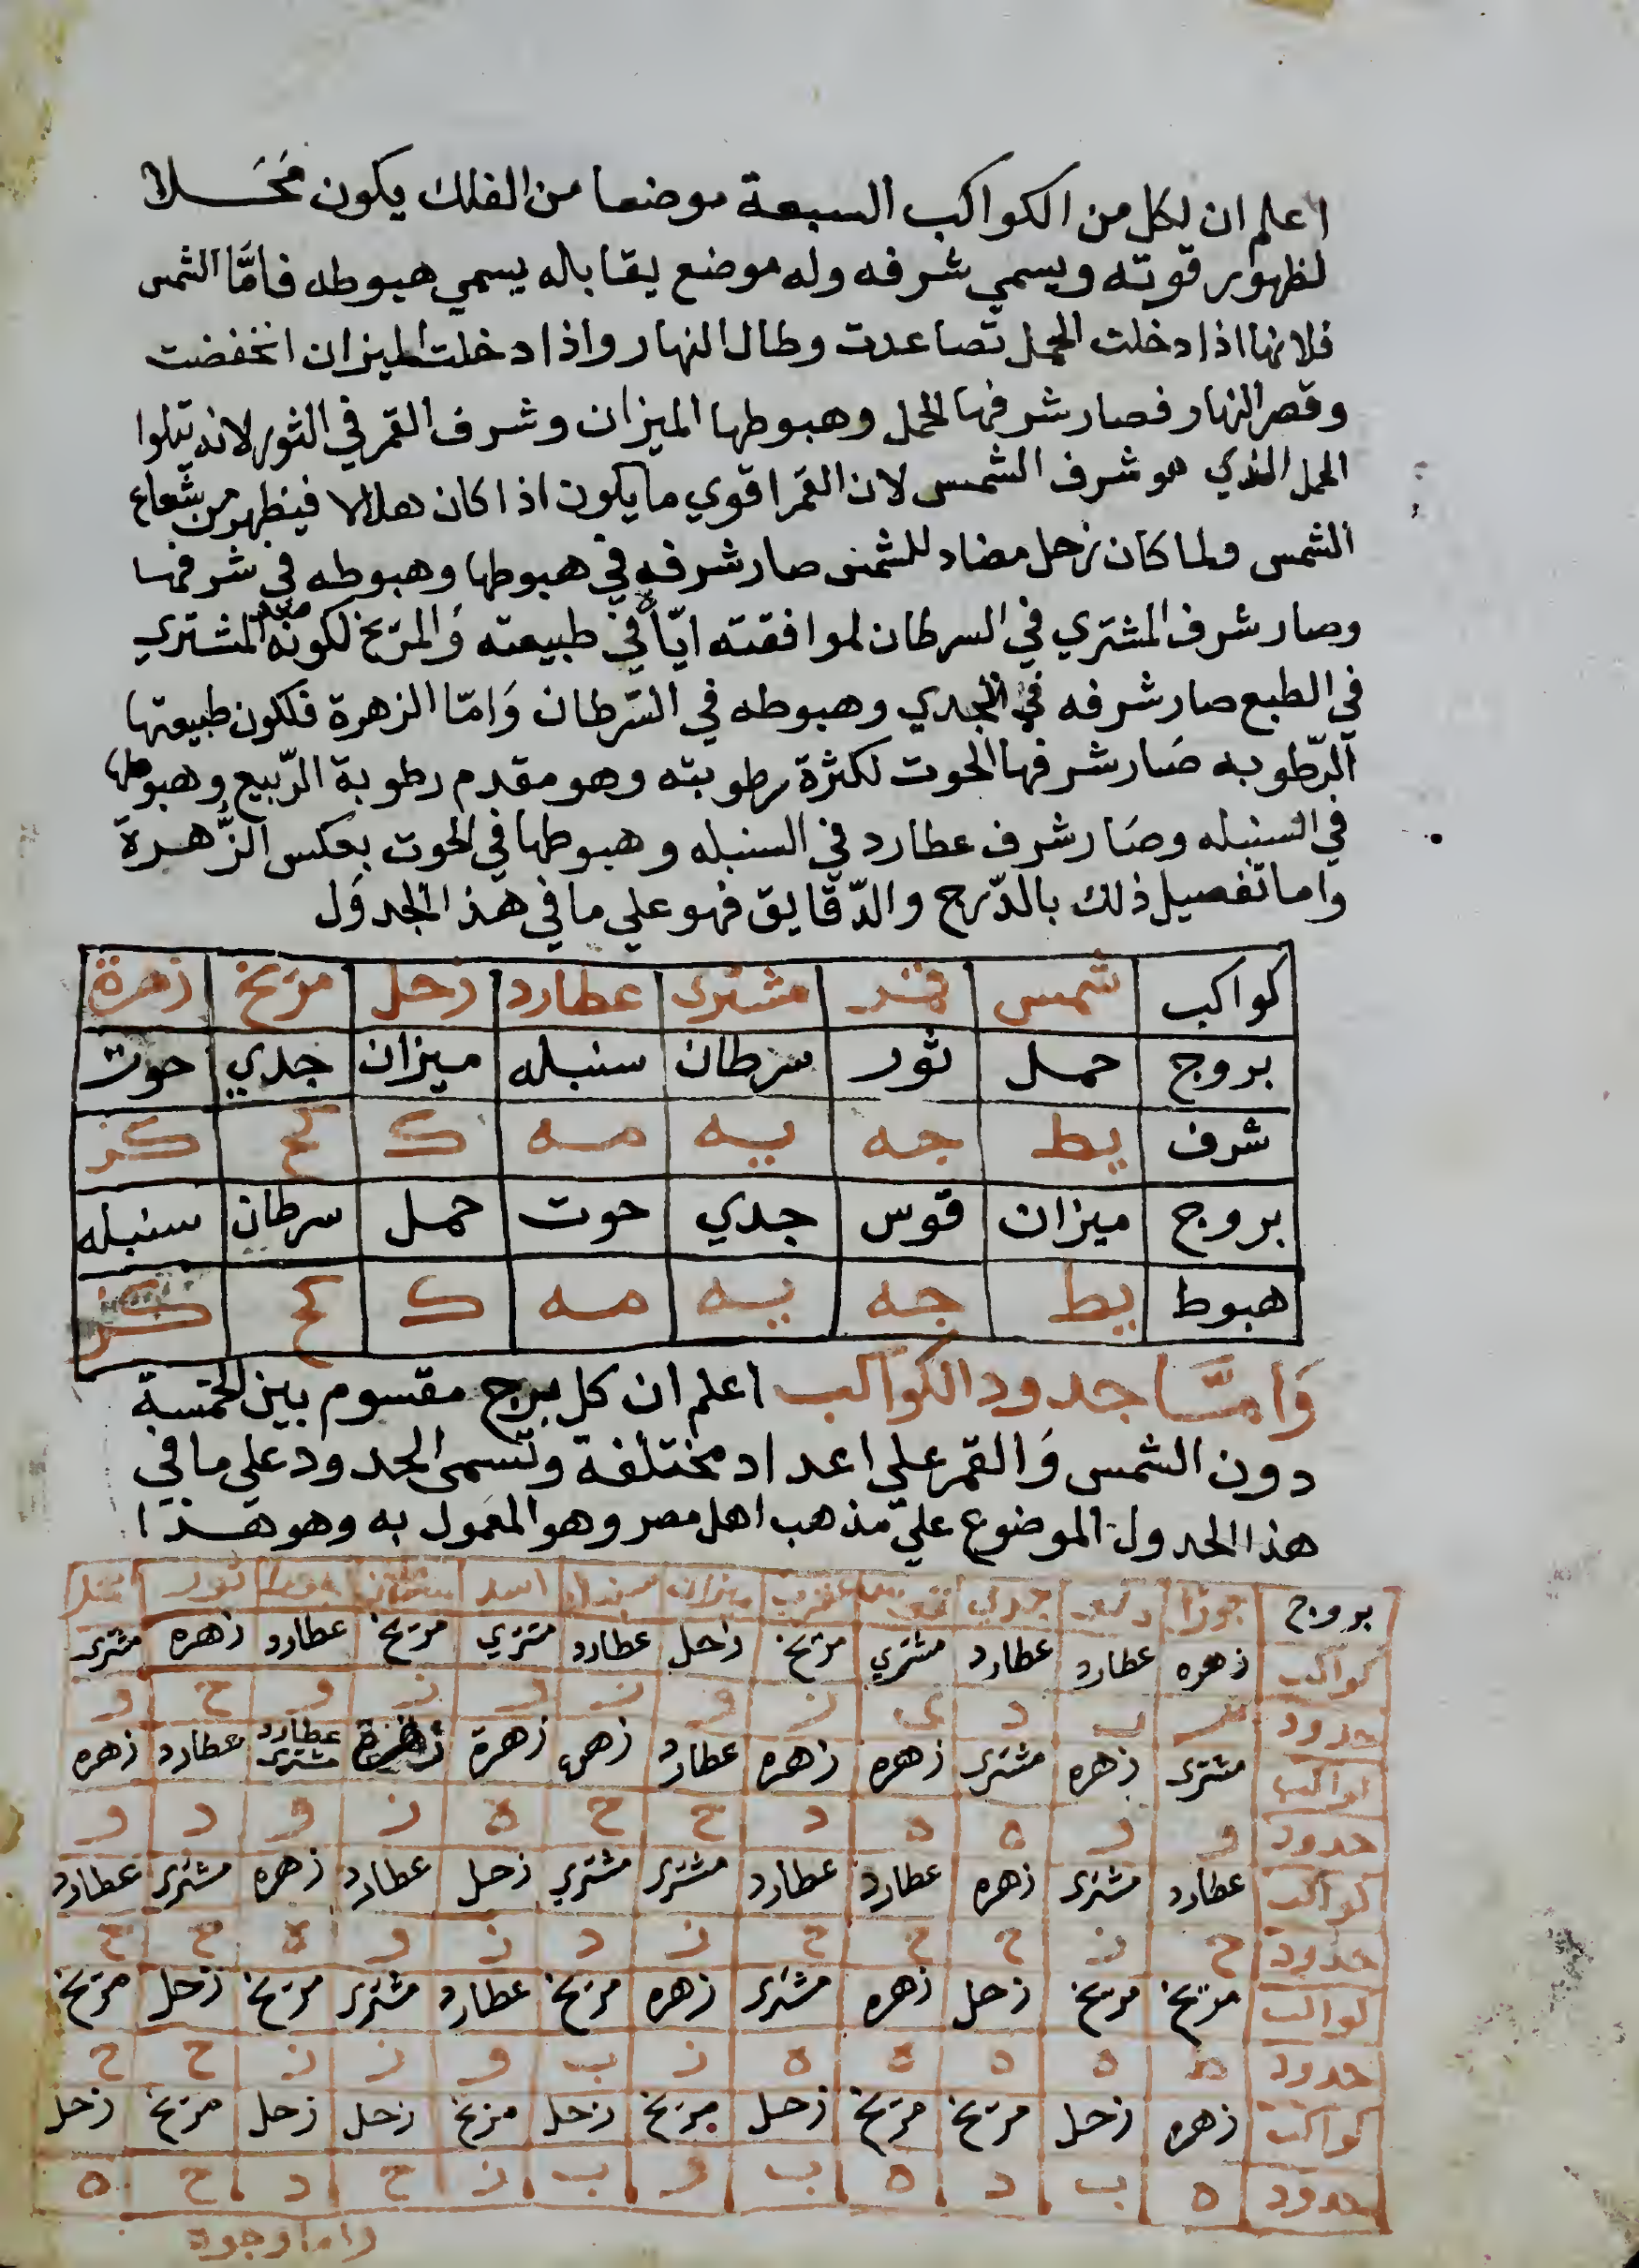 اعلم ان لكل من الكواكب السبعة موضعا من الفلك يكون مَحَلا
لظهور قوته ويسمي شرفه وله موضع يقابله يسمي هبوطه فامَّا الشمس
فلانها اذا دخلت الحمل تصاعدت وطال النهار واذا دخلت الميزان انخفضت
وقصر النهار فصار شرفها الحمل وهبوطها الميزان وشرف القمر في الثور لانه يتلوا
الحمل الذي هو شرف الشمس لان القمر اقوي ما يكون اذا كان هلالا فيظهر من شعاع
الشمس ولما كان زحل مضاد للشمس صار شرفه في هبوطها وهبوطه في شرفها
وصار شرف المشتري في السرطان لموافقته ايّاه في طبيعته وَالمريخ لكونه ضد المشتري
في الطبع صار شرفه في الجدي وهبوطه في السّرطان وَامّا الزهرة فلكون طبيعتها
الرّطوبه صَار شرفها الحوت لكثرة رطوبته وهو مقدم رطوبة الرّبيع وهبوطها
في السنبله وصَار شرف عطارد في السنبله وهبوطها في الحوت بعكس الزُّهرة
واما تفصيل ذلك بالدّرج والدّقايق فهو علي ما في هذا الجدوَل
كواكب شمس قمر مشترى عطارد زحل مريخ زهرة
بروج حمل ثور سرطان سنبله ميزان جدي حوت
شرف يط جه يه مه ك كح كز
بروج ميزان قوس جدي حوت حمل سرطان سنبله
هبوط يط جه يه مه ك كح كز
وَامَّا حدود الكواكب اعلم ان كل برج مقسوم بين الخمسة
دون الشمس وَالقمر علي اعداد مختلفة وتسمى الحدود علي ما في
هذا الجدول الموضوع علي مذهب اهل مصر وهو المعمول به وهو هذا
بروج جوزا دلو جدي قوس عقرب ميزان سنبله اسد سرطان ثور
كواكب زهره عطارد عطارد مشتري مريخ زحل عطارد مشتري مريخ عطارد زهره مشترى
حدود ب د ى ز و ز و ز و ح و
كواكب مشترى زهره مشترى زهره زهره عطارد زهره زهرة زهرة عطارد مشترى عطارد زهره
حدود و و ه ه د ح ح ه ز و د و
كواكب عطارد مشترى زهره عطارد عطارد مشترى مشتري زحل عطارد زهره مشترى عطارد
حدود ح ز ح ح ح ز د ز و ه ح ح
كواكب مريخ مريخ زحل زهره مشترى زهره مريخ عطارد مشترى مريخ زحل مريخ
حدود ه ه ه ه ه ز ب و ز ز ح ح
كواكب زهره زحل مريخ مريخ زحل مريخ زحل مريخ زحل زحل مريخ زحل
حدود ه ب د ه ب و ب ز ح د ح ه
واما وجوه